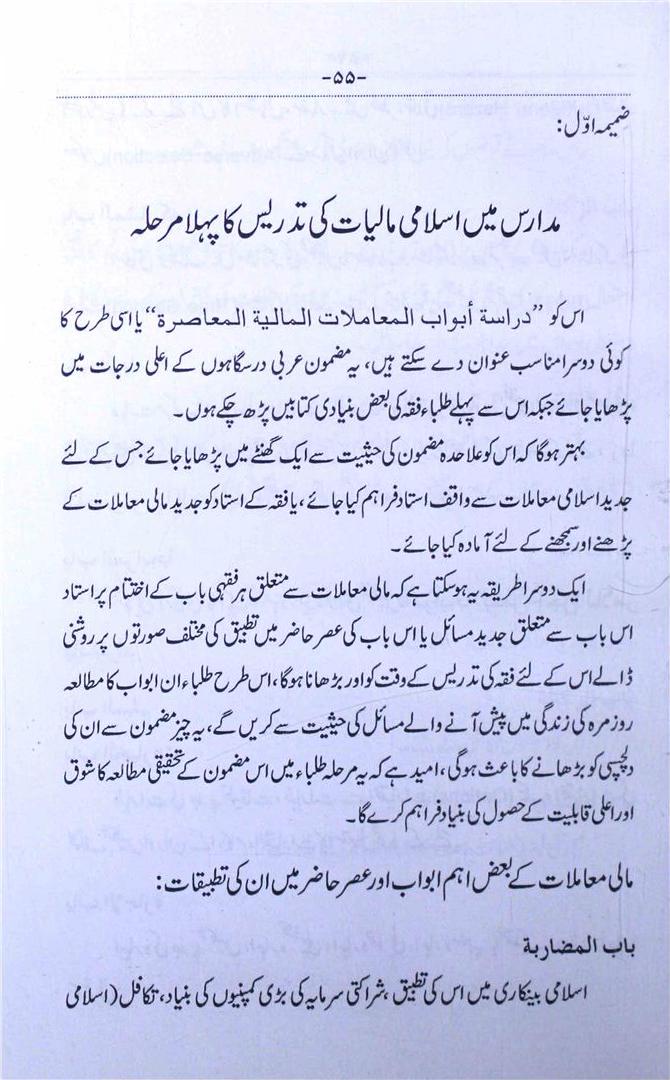 -۵۵-
ضمیمہ اوّل:
مدارس میں اسلامی مالیات کی تدریس کا پہلا مرحلہ
اس کو ”دراسة أبواب المعاملات المالية المعاصرة“ یا اسی طرح کا
کوئی دوسرا مناسب عنوان دے سکتے ہیں، یہ مضمون عربی درسگاہوں کے اعلی درجات میں
پڑھایا جائے جبکہ اس سے پہلے طلباء فقہ کی بعض بنیادی کتابیں پڑھ چکے ہوں۔
بہتر ہوگا کہ اس کو علاحدہ مضمون کی حیثیت سے ایک گھنٹے میں پڑھایا جائے جس کے لئے
جدید اسلامی معاملات سے واقف استاد فراہم کیا جائے، یا فقہ کے استاد کو جدید مالی معاملات کے
پڑھنے اور سمجھنے کے لئے آمادہ کیا جائے۔
ایک دوسرا طریقہ یہ ہو سکتا ہے کہ مالی معاملات سے متعلق ہر فقہی باب کے اختتام پر استاد
اس باب سے متعلق جدید مسائل یا اس باب کی عصر حاضر میں تطبیق کی مختلف صورتوں پر روشنی
ڈالے اس کے لئے فقہ کی تدریس کے وقت کو اور بڑھانا ہوگا، اس طرح طلباء ان ابواب کا مطالعہ
روز مرہ کی زندگی میں پیش آنے والے مسائل کی حیثیت سے کریں گے، یہ چیز مضمون سے ان کی
دلچسپی کو بڑھانے کا باعث ہوگی، امید ہے کہ یہ مرحلہ طلباء میں اس مضمون کے تحقیقی مطالعہ کا شوق
اور اعلی قابلیت کے حصول کی بنیاد فراہم کرے گا۔
مالی معاملات کے بعض اہم ابواب اور عصر حاضر میں ان کی تطبیقات:
باب المضاربة
اسلامی بینکاری میں اس کی تطبیق، شراکتی سرمایہ کی بڑی کمپنیوں کی بنیاد، تکافل (اسلامی